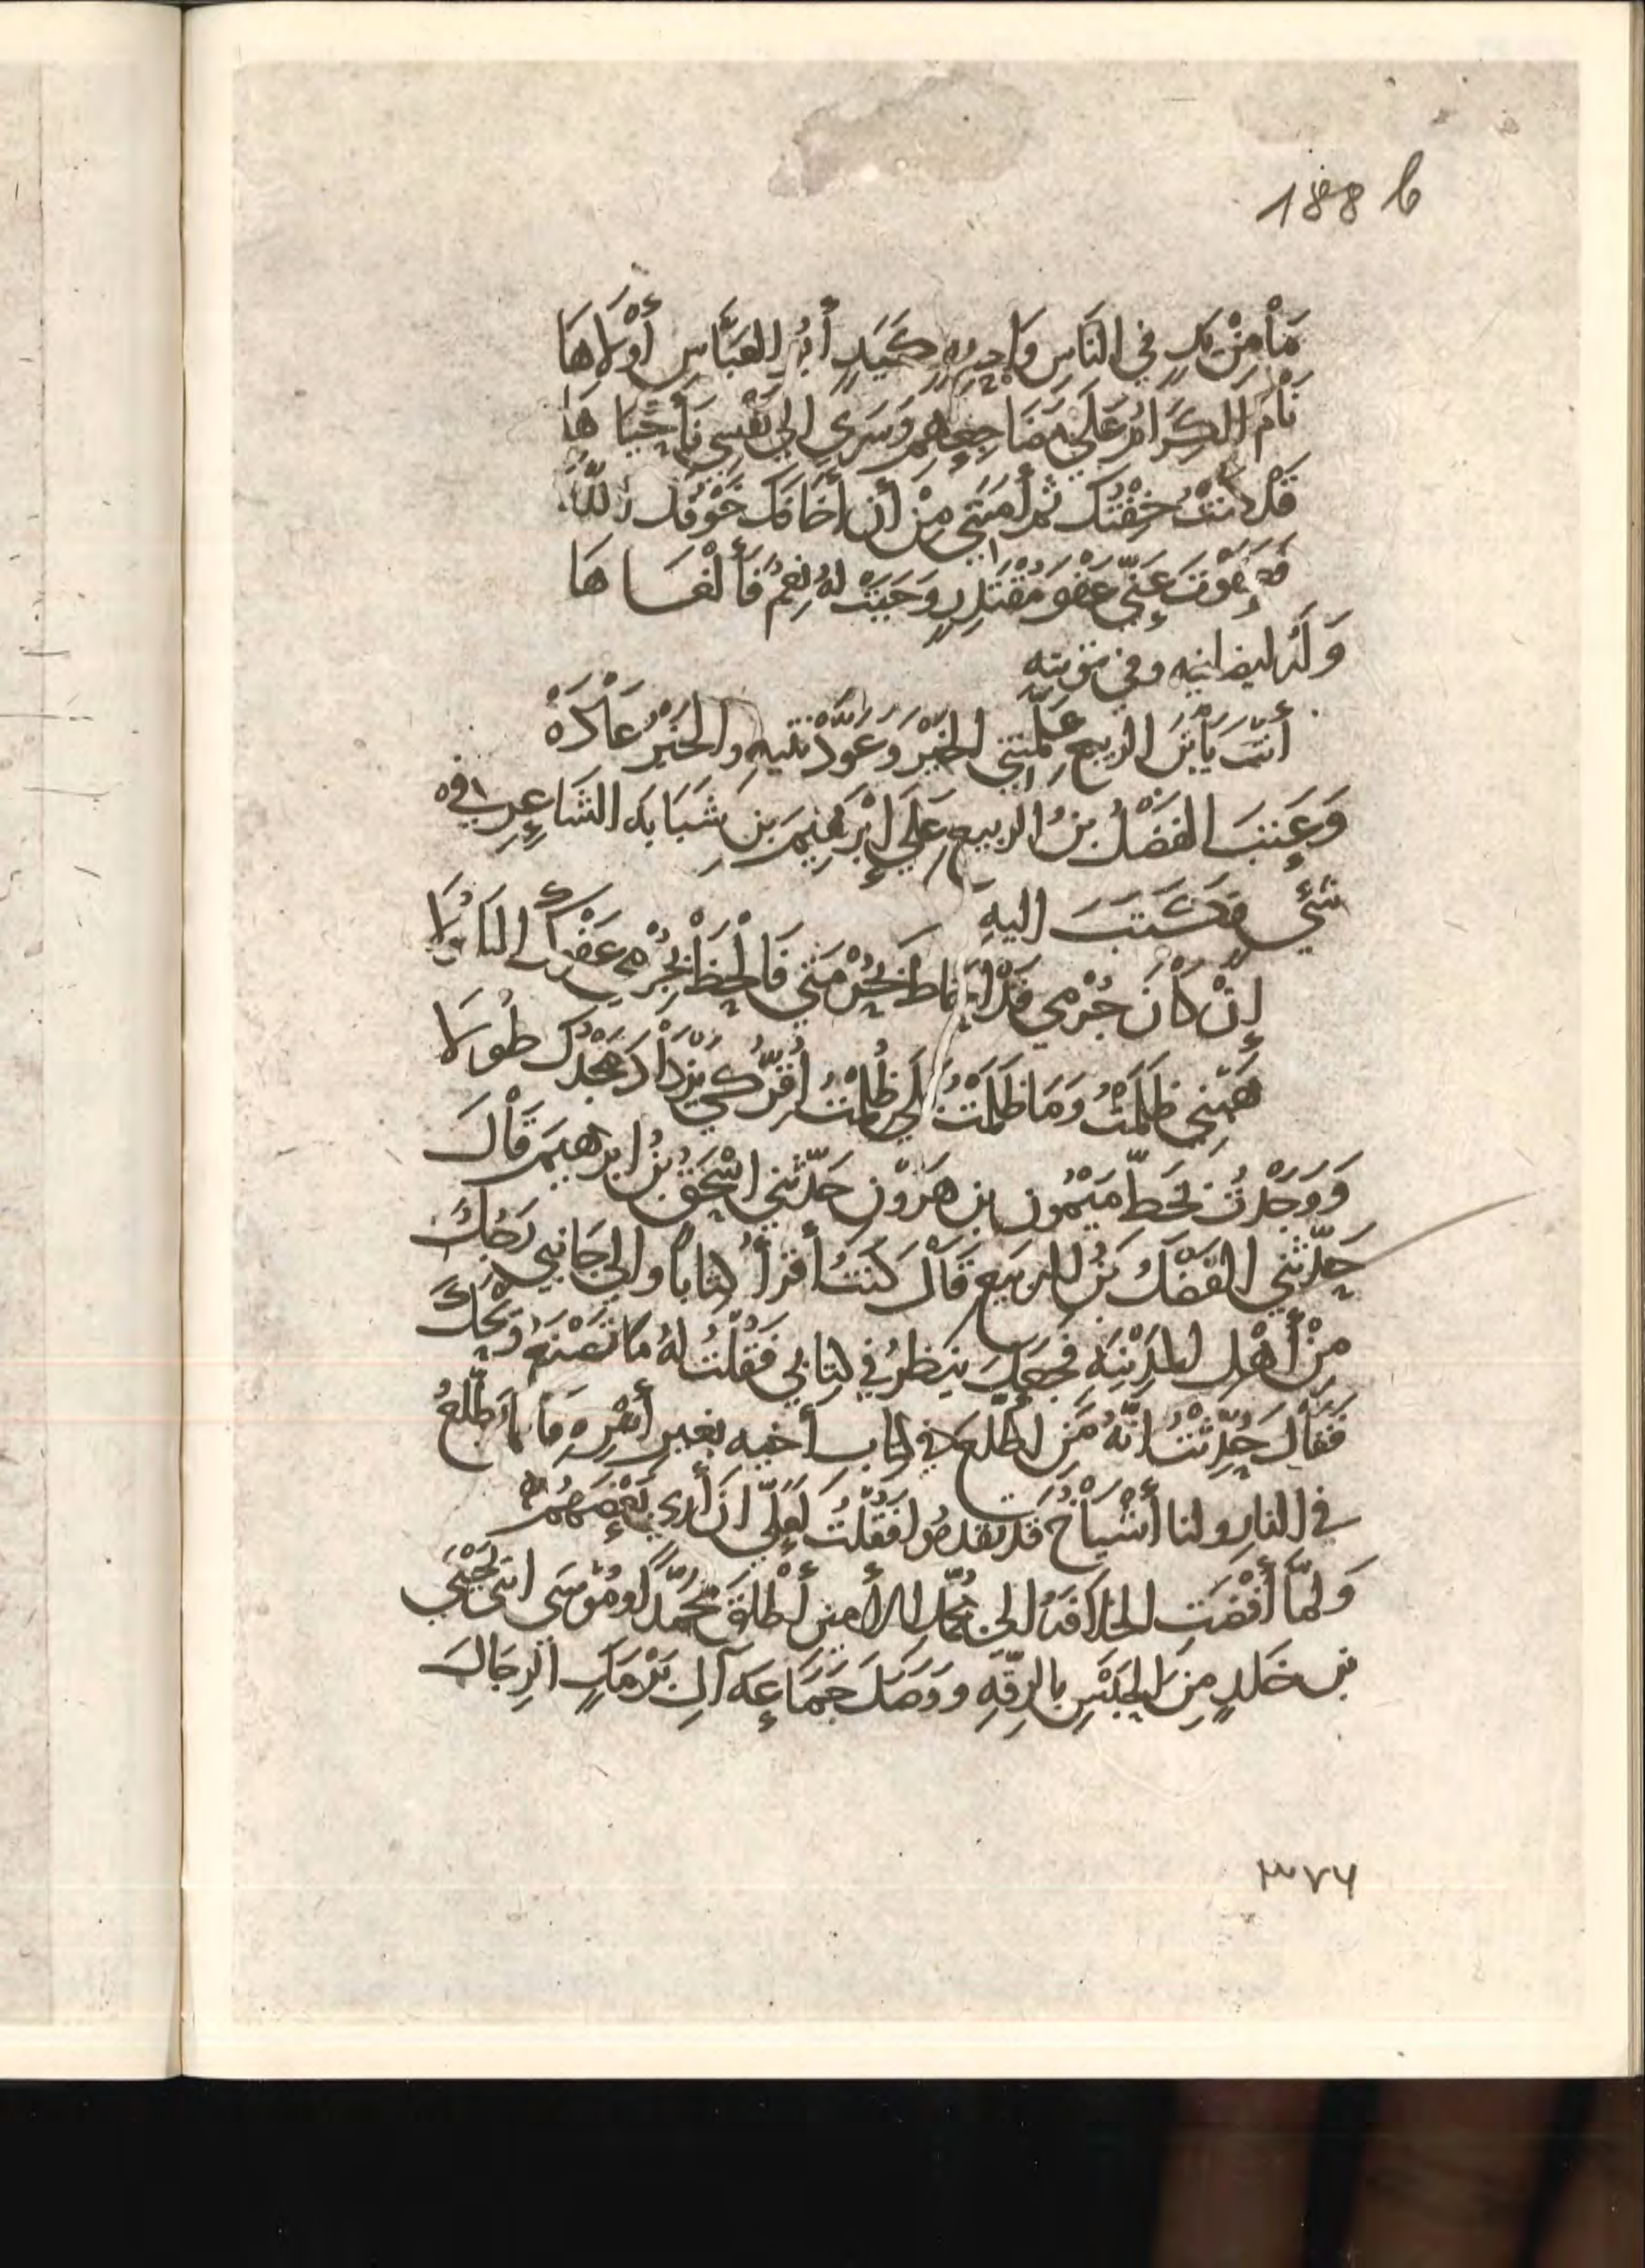 188 b
مَا مِنْ يَدٍ فِي النَاسِ وَاحِدةٍ كَيَدٍ أَبُو العَبَّاسِ أَوْلَاهَا
نَامَ الكِرَامُ عَلَى مَضَاجِعِهِم وَسَرَى إِلَى نَفْسِي فَأَحْيَاهَا
قَدْ كُنْتُ خِفْتُكَ ثم أَمَّنَنِي مِنْ أَن أَخَافَكَ خَوْفُكَ اللّهَ
فَعَفَوْتَ عَنِّي عَفْوَ مُقْتَدِرٍ وَجَبَتْ لَهُ نِعَمٌ فَأَلْغَاهَا
وَلَهُ ايضا فيه وفي توبته
أَنْتَ يَا بْنَ الربيعِ عَلَّمْتَنِي الخَيْرَ وَعَوَّدْتَنِيهِ والخَيْرُ عَادَهْ
وَعَتِبَ الفَضْلُ بنُ الربيعِ عَلَى إِبْرَهِيمَ بنِ شَبَابَه الشَاعِرِ في
شَيْءٍ فَكَتَبَ اليهِ
إِنْ كَانَ جُرْمِي قَدْ أَحَاطَ بِحُرْمَتِي فَاحْطُطْ بِجُرْمِي عَفْوَكَ المَأْمُولَا
هَبْنِي ظَلَمْتُ وَمَا ظَلَمْتُ بَلَى ظَلَمْتُ أُقِرُّ كَي يَزْدَادَ مَجْدُكَ طُولَا
وَوَجَدْتُ بخَطِّ مَيْمُونِ بنِ هَرُونَ حَدّثَنِي اسْحَقُ بنُ ابرهيمَ قَالَ
حَدّثَنِي الفَضْلُ بنُ الربيعِ قَالَ كُنْتُ أَقْرَأُ كِتَاباً والى جَانِبِي رَجُلٌ
مِنْ أَهْلِ المَدِيْنَهِ فجَعَلَ يَنْظُرُ في كِتَابِي فَقُلْتُ لَهُ مَا تَصْنَعُ وَيْحَكَ
فَقَالَ حُدِّثْتُ انّهُ مَنِ اطَّلَعَ في كتاب أخيه بغير أَمْرِهِ فَانمَا اطَّلعَ
في النارِ ولنا أَشْيَاخٌ قد تقدمُوا فَقُلْتُ لَعَلّي ان أرى بَعْضَهُمْ
وَلَمَّا أَفْضَتِ الخلافَهُ الى مُحمّد الأمين أَطْلَقَ مُحَمَّداً ومُوْسَى ابنَي يَحْيَى
بن خَلدٍ مِنَ الحَبْسِ بالرقّهِ وَوَصَلَ جَمَاعَهَ آلِ بَرْمَكٍ الرِجَالَ
٣٧٦